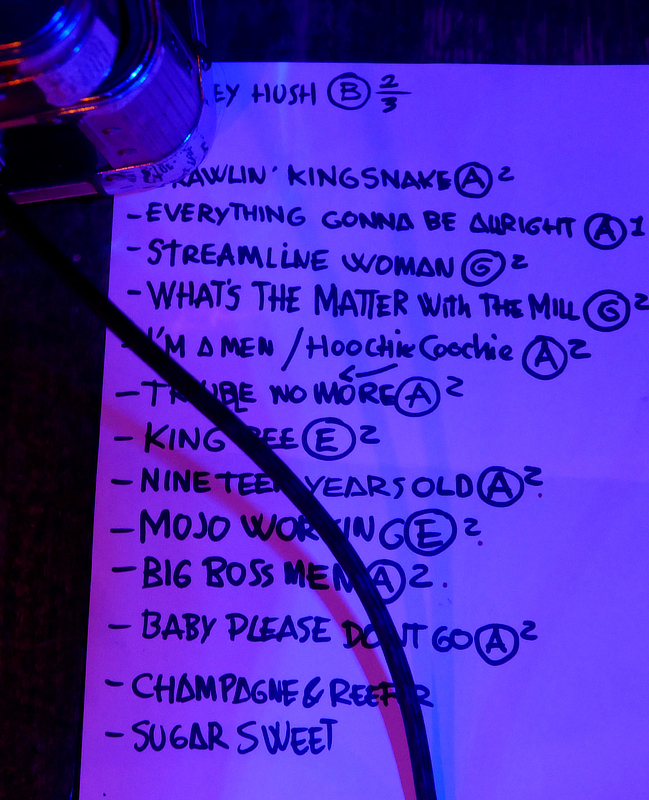 EY HUSH (B) 2/3
RAWLIN' KINGSNAKE (A) 2
- EVERYTHING GONNA BE ALLRIGHT (A) 1
- STREAMLINE WOMAN (G) 2
- WHAT'S THE MATTER With THE MILL (G) 2
- I'M A MEN / HOOCHIE COOCHIE (A) 2
- TROUBLE NO MORE (A) 2
- KING BEE (E) 2
- NINETEEN YEARS OLD (A) 2.
- MOJO WORKING (E) 2.
- BIG BOSS MEN (A) 2.
- BABY PLEASE DON'T GO (A) 2
- CHAMPAGNE & REEFER
- SUGAR SWEET